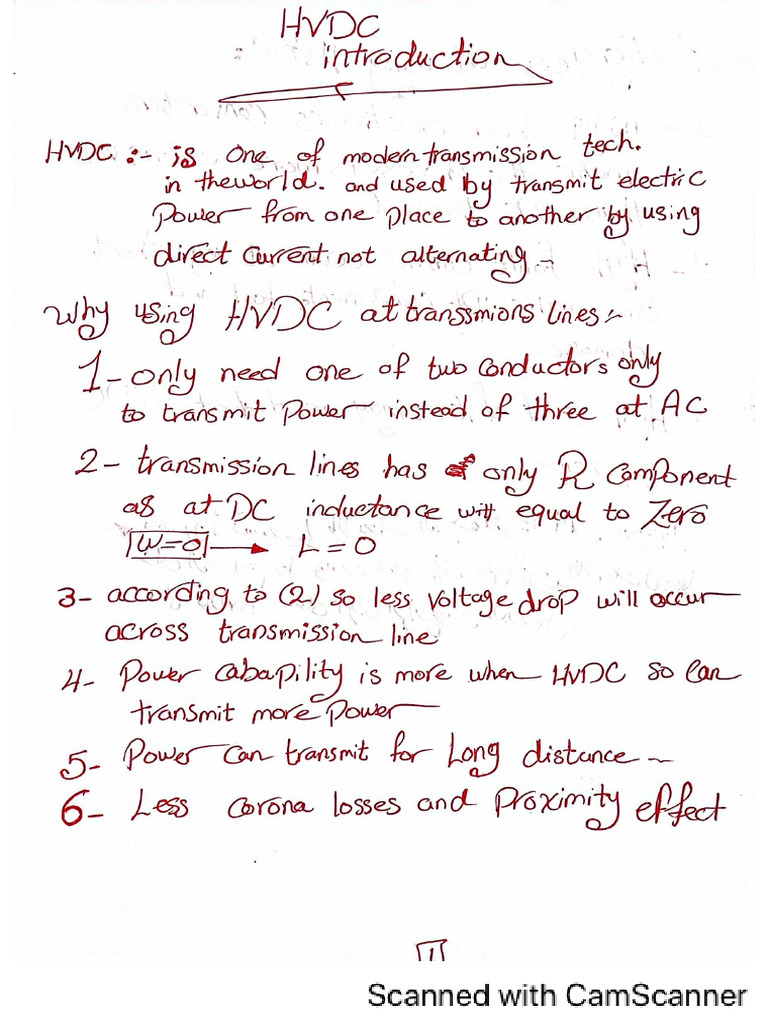 HVDC
: introduction
HVDC :- is one of modern transmission tech.
in the world. and used by transmit electric
Power from one place to another by using
direct current not alternating -
why using HVDC at transsmions lines :-
1- only need one of two conductors only
to transmit power instead of three at AC
2- transmission lines has only R component
as at DC inductance will equal to Zero
W=0 → L=0
3- according to (2) so less voltage drop will occur
across transmission line
4- Power cabapility is more when HVDC so can
transmit more power
5- Power can transmit for Long distance -
6- Less corona losses and Proximity effect
1
Scanned with CamScanner